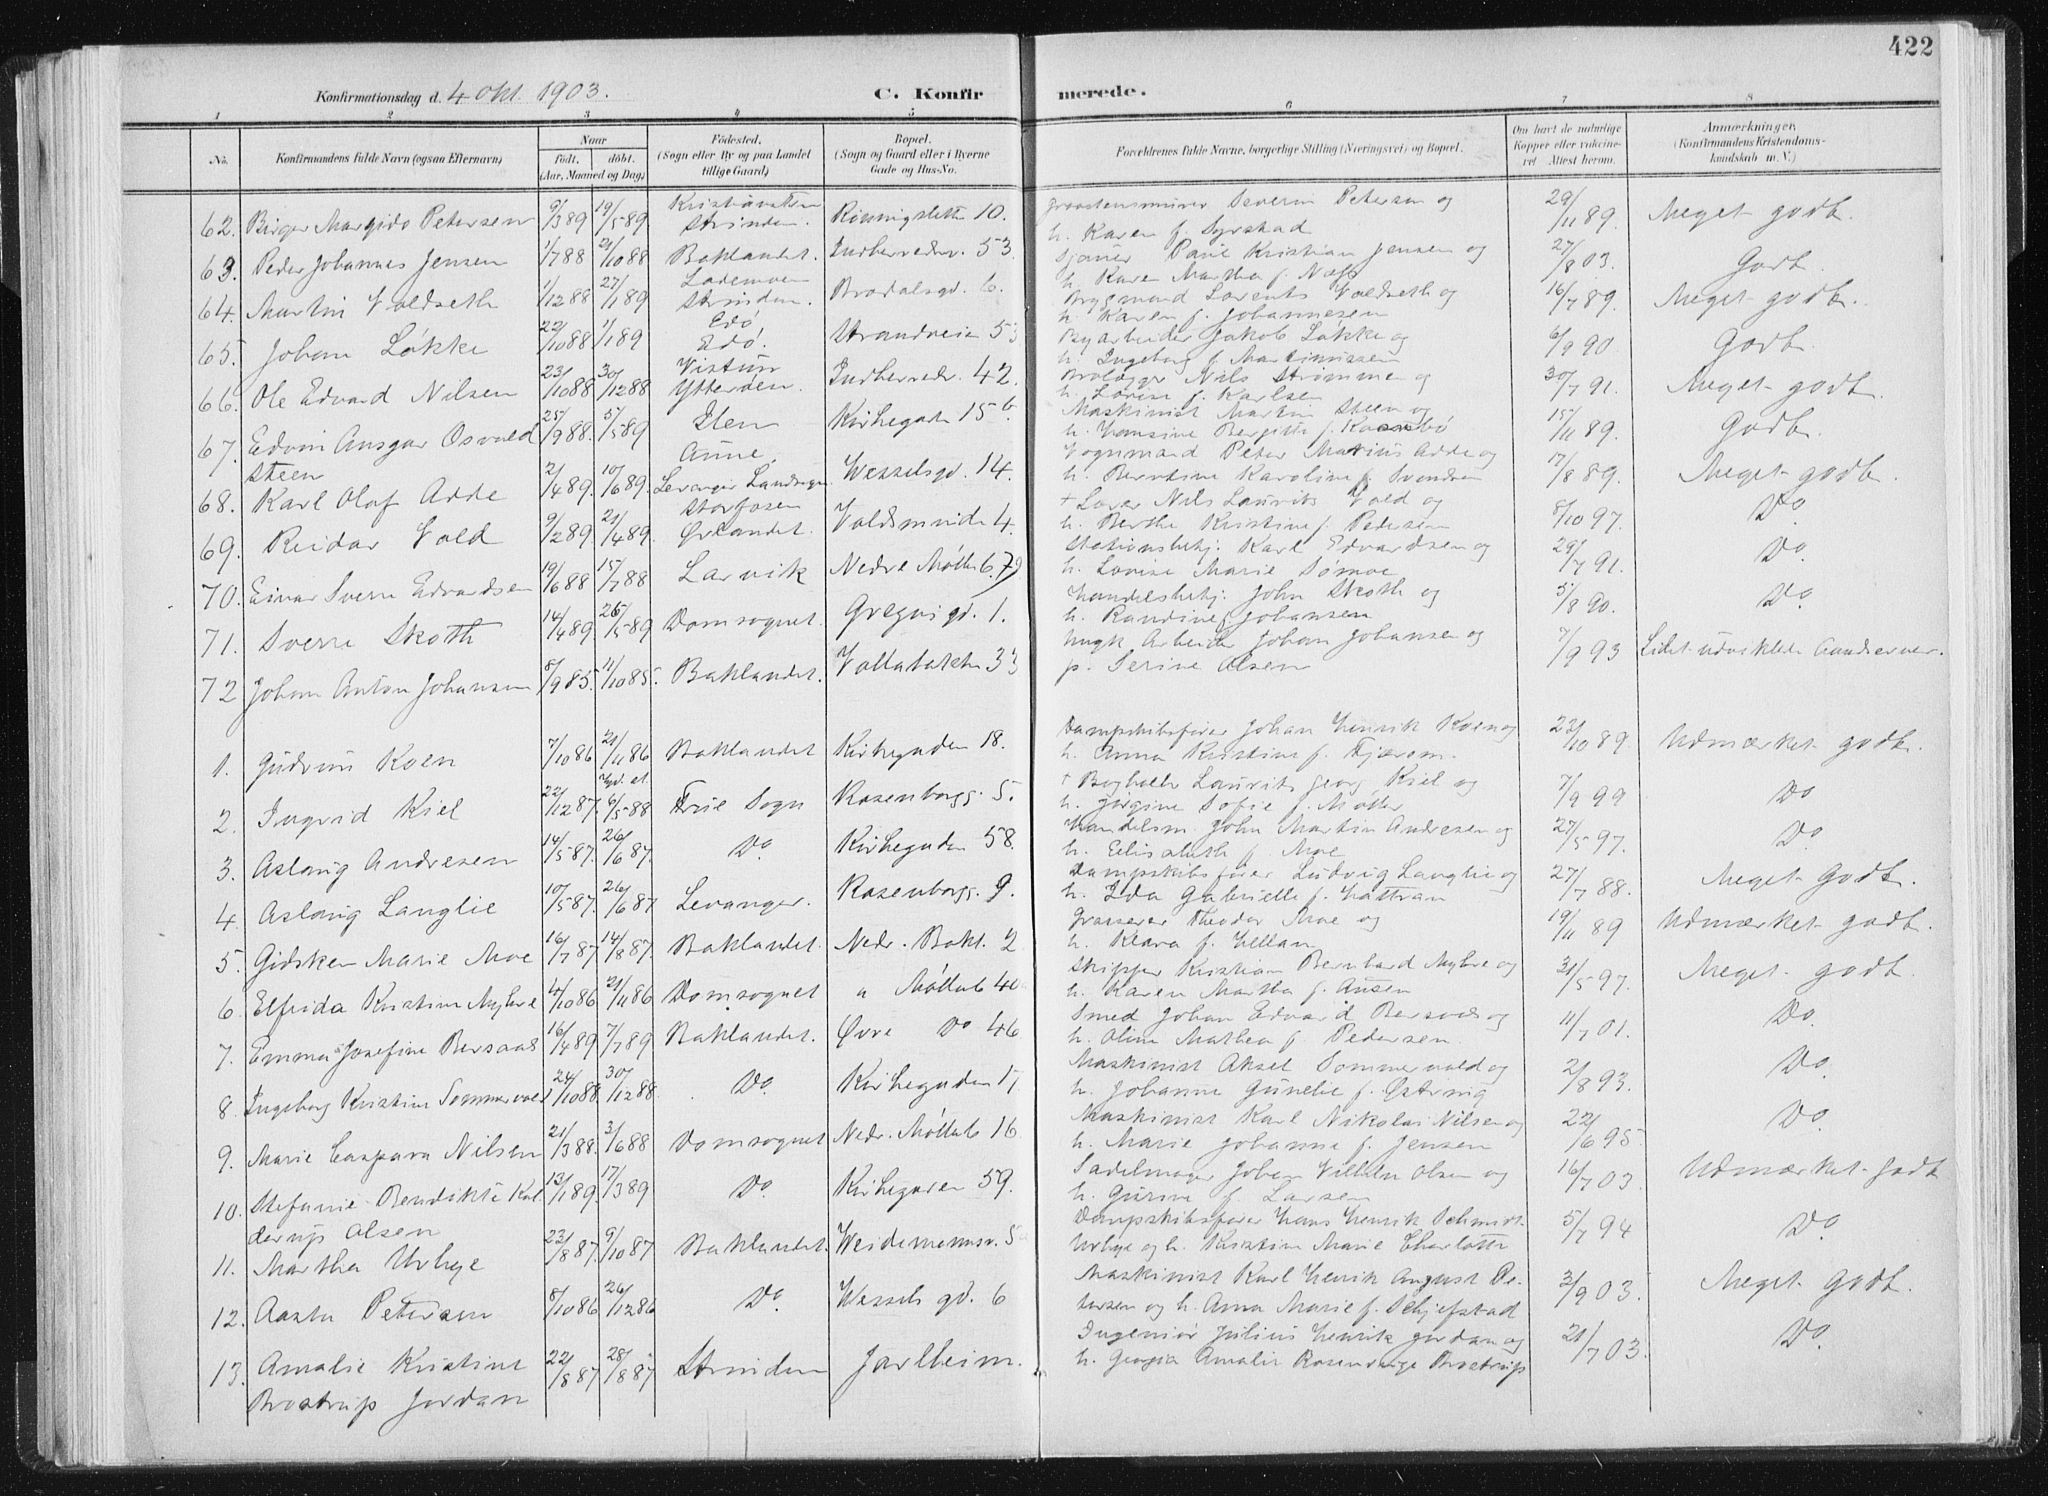 422
Konfirmationsdag d. 4 Okt. 1903.
C. Konfir
merede.
1 2 3 4 5 6 7 8
No. Konfirmandens fulde Navn (ogsaa Efternavn) Naar født, døbt. (Aar, Maaned og Dag) Fødested. (Sogn eller By og paa Landet tillige Gaard) Bopæl. (Sogn og Gaard eller i Byerne Gade og Hus-No. Forældrenes fulde Navne, borgerlige Stilling (Næringsvei) og Bopæl. Om havt de naturlige Kopper eller vaccineret Attest herom. Anmærkninger. (Konfirmandens Kristendomskundskab m. V.)
62. Birger Margido Petersen 9/3 89 19/5 89 Strinden. 10. Severin Petersen og
h. Karen f. Syrstad 29/11 89. Meget godt.
63. Peder Johannes Jensen 1/7 88 21/10 88 Baklandet. Indherredsv. 53. Sjauer Paul Kristian Jensen og
h. Karen Martha f. Næss 27/8 03. Godt.
64. Martin Voldseth 1/12 88 27/1 89 Lademoen
Strinden. 6. Brygmand Lorents Voldseth og
h. Karen f. Johannesen 16/7 89. Meget godt.
65. Johan Løkke 22/10 88 1/1 89 Edø
Edø. Strandveien 53 Byarbeider Jakob Løkke og
h. Ingeborg f. Martinussen 6/9 90 Godt.
66. Ole Edvard Nilsen 23/10 88 30/12 88 Ytterøen. Indherredsv. 42. Brolægger Nils Strømmen og
h. Lovise f. Karlsen 30/7 91. Meget godt.
67. Edvin Ansgar Osvald
Steen 25/9 88. 5/5 89 Ilen Kirkegaden 15 b. Maskinist Martin Steen og
h. Hansine Bergitte f. 15/11 89. Godt.
68. Karl Olaf Adde 2/4 89. 10/6 89. Levanger Landsogn Wesselsgd. 14. Vognmand Peter Marius Adde og
h. Berntine Karoline f. Svendsen 17/8 89. Meget godt.
69. Reidar Vold 9/2 89 21/4 89. Storfosen
Ørlandet. Voldsminde 4. + Nils Laurits Vold og
h. Berthe Kristine f. Pedersen 8/10 97. Do.
70. Einar Sverre Edvardsen 19/6 88 15/7 88 Larvik Nedre Møllenb. 79 Stationsbetj. Karl Edvardsen og
h. Lovise Marie Sømoe 29/7 91. Do.
71. Sverre Skoth 14/4 89 26/5 89 Domsognet. Gregusgd. 1. Handelsbetj. John Skoth og
h. Randine f. Johansen 5/8 90. Do.
72 Johan Anton Johansen 8/9 85. 11/10 85. Baklandet. Vollabakken 33 Ungk. Arbeider Johan Johansen og
p. Serine Olsen 7/9 93 Lidet udviklede Aandsevner.
1. Gudrun Koen 7/10 86 21/11 86 Baklandet Kirkegaden 18. Dampskibsfører Johan Henrik Koen og
h. Anna Kristine f. Fjærem. 23/10 89. Udmærket godt.
2. Ingrid Kiel 22/12 87. 6/5 88 Frue Sogn Rosenborgg. 5. + Bogholder Laurits Georg Kiel og
h. Jørgine Sofie f. Møller 7/9 99 Do
3. Aslaug Andresen 14/5 87. 26/6 87. Do. Kirkegaden 58. Handelsm. John Martin Andresen og
h. Elisabeth f. Moe 27/5 97. Do.
4 Aslaug Langlie 10/5 87. 26/6 87 Levanger. Rosenborgg. 9. Dampskibsfører Ludvig Langlie og
h. Ida Gabrielle f. Hattran 27/7 88. Meget Godt.
5. Gidsken Marie Moe 16/7 87 14/8 87. Baklandet. Nedr. Bakl. 2 Grosserer Theodor Moe og
h. Klara f. Hellan 19/11 89 Udmærket godt.
6. Elfrida Kristine Myhre 4/10 86 21/11 86 Domsognet " Møllenb 40 Skipper Kristian Bernhard Myhre og
h. Karen Martha f. Ansen 31/5 97. Meget godt.
7. Emma Josefine Bersaas 16/4 89 7/7 89 Baklandet. Øvre Do 46 Smed Johan Edvard Bersaas og
h. Oline Mathea f. Pedersen. 11/7 01. Do.
8. Ingeborg Kristine Sommervold 24/10 88. 30/12 88. Do. Kirkegaden 17. Maskinist Aksel Sommervold og
h. Johanne Gunelie f. Østvig 2/8 93. Do.
9. Marie Caspara Nilsen 21/3 88. 3/6 88 Domsognet Nedr. Møllenb 16 Maskinist Karl Nikolai Nilsen og
h. Marie Johanna f. Jensen 22/6 95. Do.
10. Stefanie Bendikte Kol
derup Olsen 12/1 89. 17/3 89 Do. Kirkegaden 59. Sadelmager Johan Vilhelm Olsen og
h. Gurine f. Larsen 16/7 03. Udmærket godt
11. Martha Urbye 23/8 87. 9/10 87 Baklandet. Weidemannsv. 5 Dampskibsfører Hans Henrik Schmidt
Urbye og h. Kristine Marie Charlotte 5/7 94 Do.
12. Aasta Petersen 8/10 86 26/12 86 Do. Wessels gd. 6 Maskinist Karl Henrik August Pe-
tersen og h. Anna Marie f. Schjefstad 3/9 03. Meget Godt.
13. Amalie Kristine
Brostrup Jordan 22/8 87 28/8 87 Strinden Jarlheim. Ingeniør Julius Henrik Jordan og
h. Georgia Amalie Rosenvinge Brostrup 21/7 03. Do.